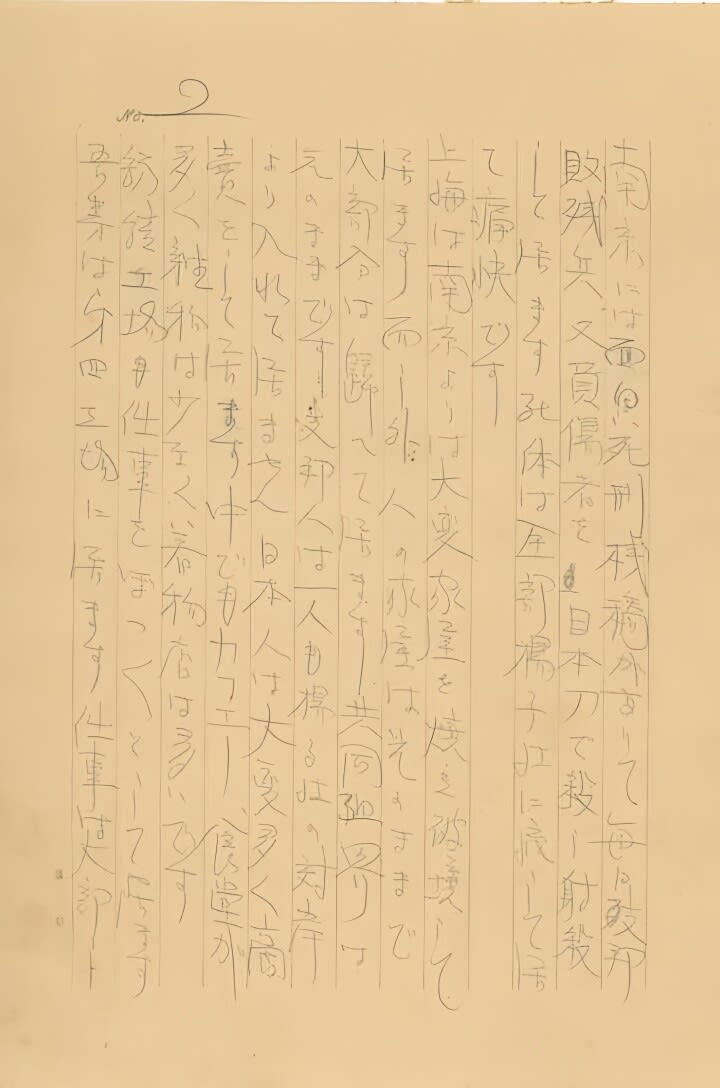 No. 2
南京には面白い死刑桟橋がありて毎日支那
敗残兵又負傷者を日本刀で殺し射殺
して居ます死体は全部揚子江に流して居
て痛快です
上海は南京よりは大変家屋を焼き破壊して
居ます而し外人の家屋は元のままで
大部分は歸へて居ます共同租界は
元のままです支那人は一人も揚子江の対岸
より入れて居ません日本人は大変多く商
賣をして居ます中でもカフエー、食堂が
多く雑物は少なく着物店は多いです
紡績工場も仕事をぼつ〱として居ます
吾等は第四工場に居ます仕事は大部し